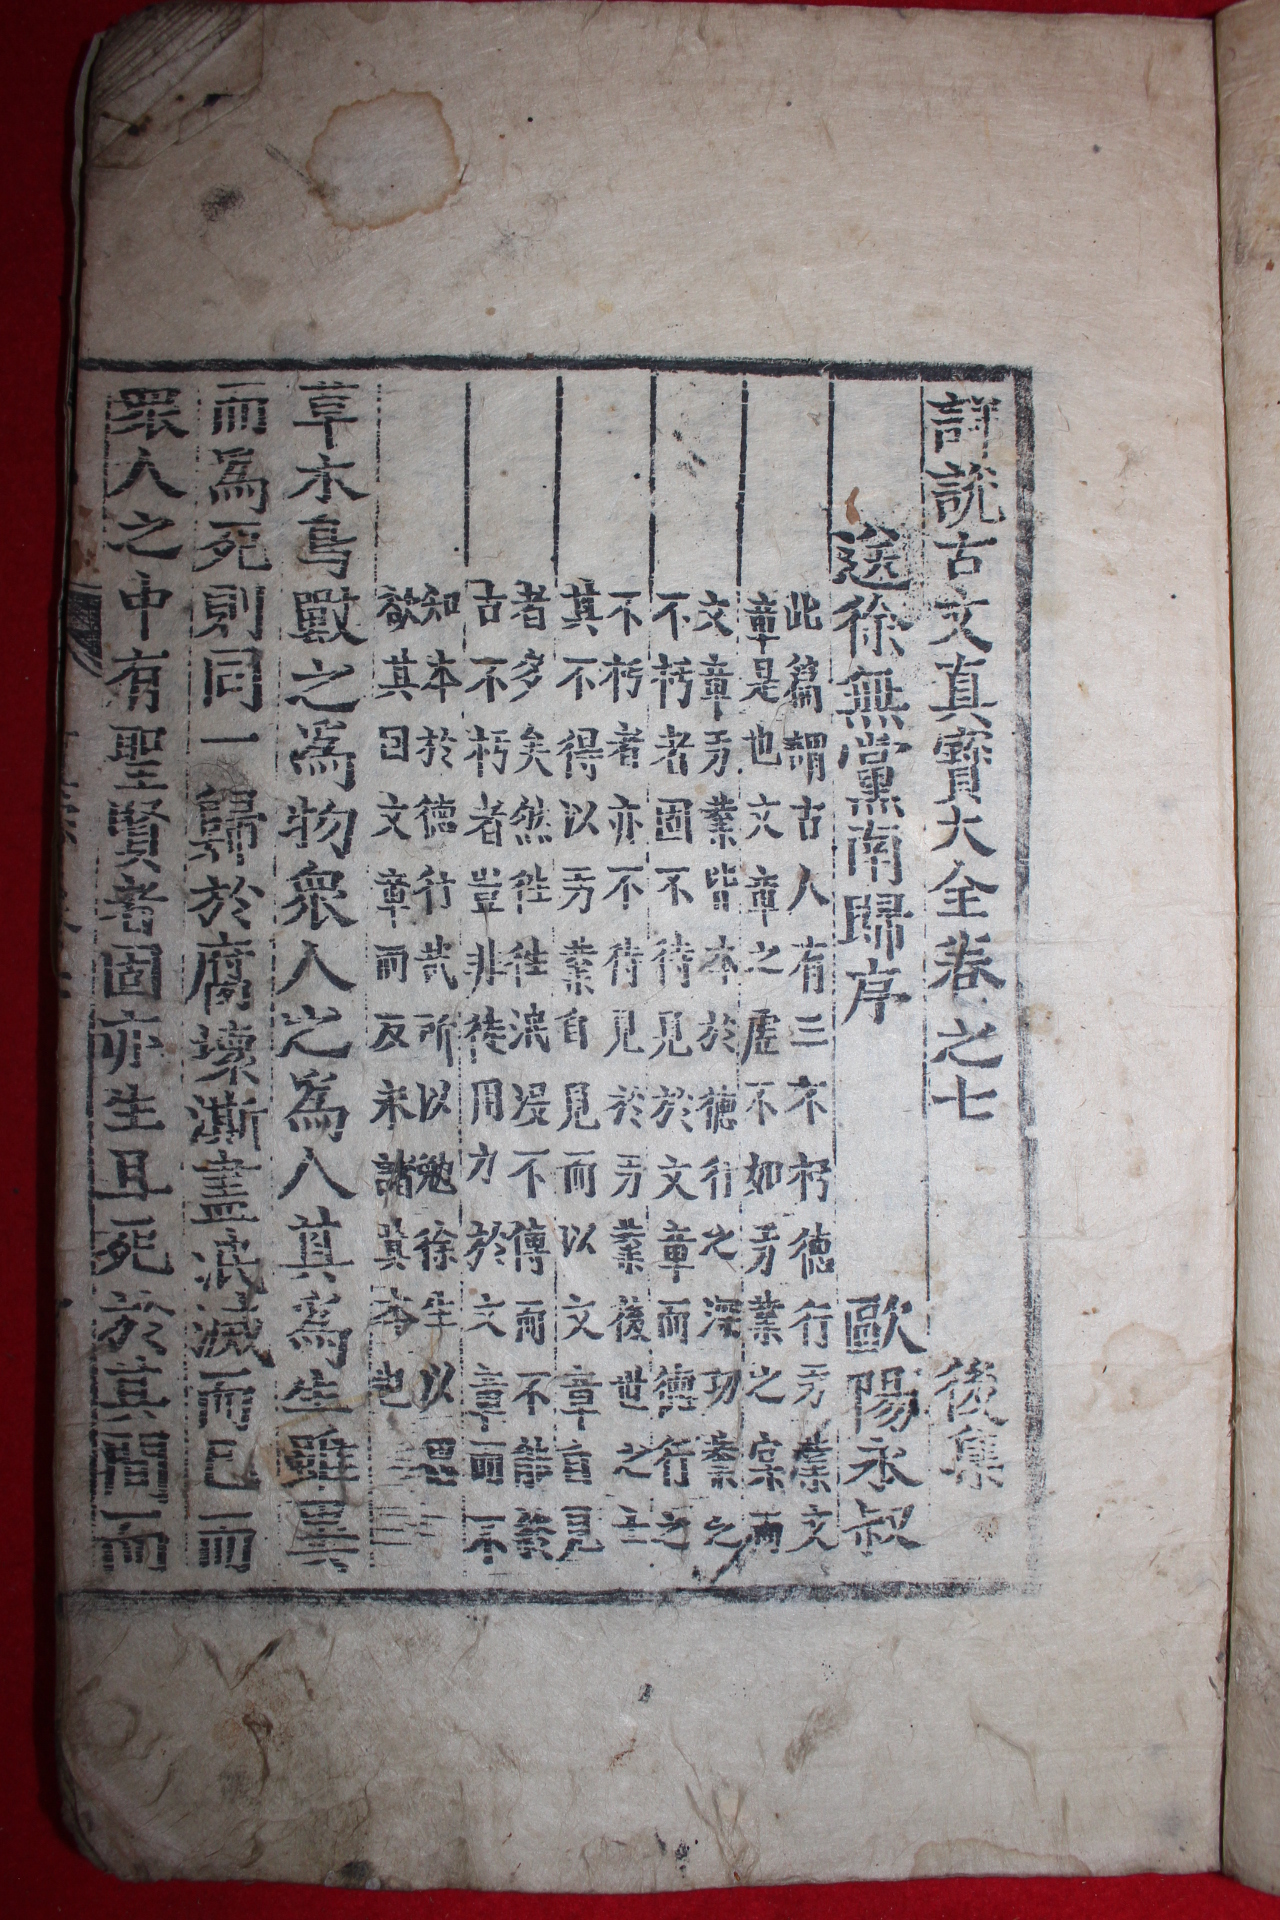 詳說古文眞寶大全卷之七 後集
送徐無黨南歸序 歐陽永叔
此篇謂古人有三不朽德行功業文
章是也文章之虛不如功業之實而
文章功業皆本於德行之深功業之
不朽者固不待見於文章而德行之
不朽者亦不待見於功業後世之士
其不得以功業自見而以文章自見
者多矣然徃徃泯沒不傳而不能幾
古不朽者豈非徒用力於文章而不
知本於德行哉所以勉徐生以思
欲其因文章而反求諸其本也
草木鳥獸之爲物衆人之爲人其爲生雖異
而爲死則同一歸於腐壞澌盡泯滅而已而
衆人之中有聖賢者固亦生且死於其間而